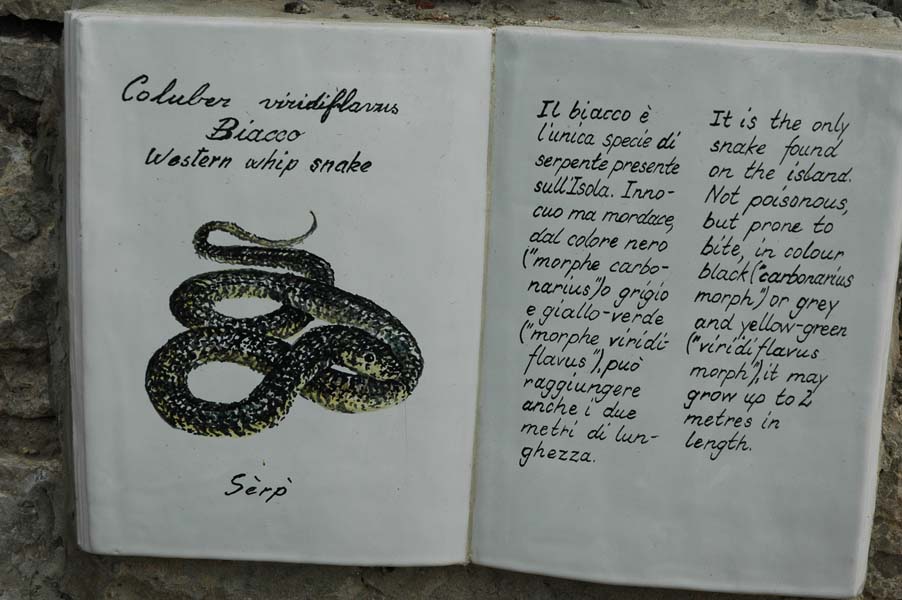 Coluber viridiflavus
Biacco
Western whip snake
Sèrp
Il biacco è
l'unica specie di
serpente presente
sull'Isola. Inno-
cuo ma mordace,
dal colore nero
("morphe carbo-
narius") o grigio
e giallo-verde
("morphe viridi-
flavus"), può
raggiungere
anche i due
metri di lun-
ghezza.
It is the only
snake found
on the island.
Not poisonous,
but prone to
bite, in colour
black ("carbonarius
morph") or grey
and yellow-green
("viridiflavus
morph"), it may
grow up to 2
metres in
length.